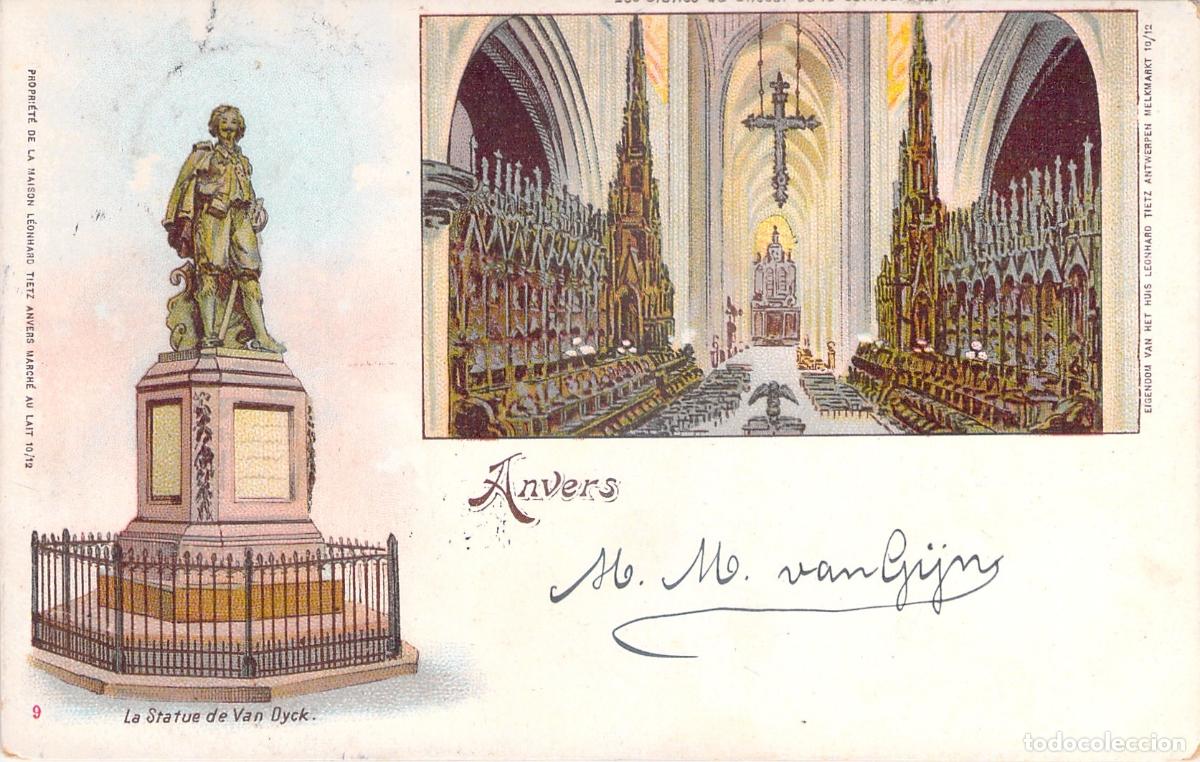 PROPRIÉTÉ DE LA MAISON LÉONHARD TIETZ ANVERS MARCHÉ AU LAIT 10/12
EIGENDOM VAN HET HUIS LEONHARD TIETZ ANTWERPEN MELKMARKT 10/12
Anvers
M. M. van Gijn
9
La Statue de Van Dyck.
todocoleccion